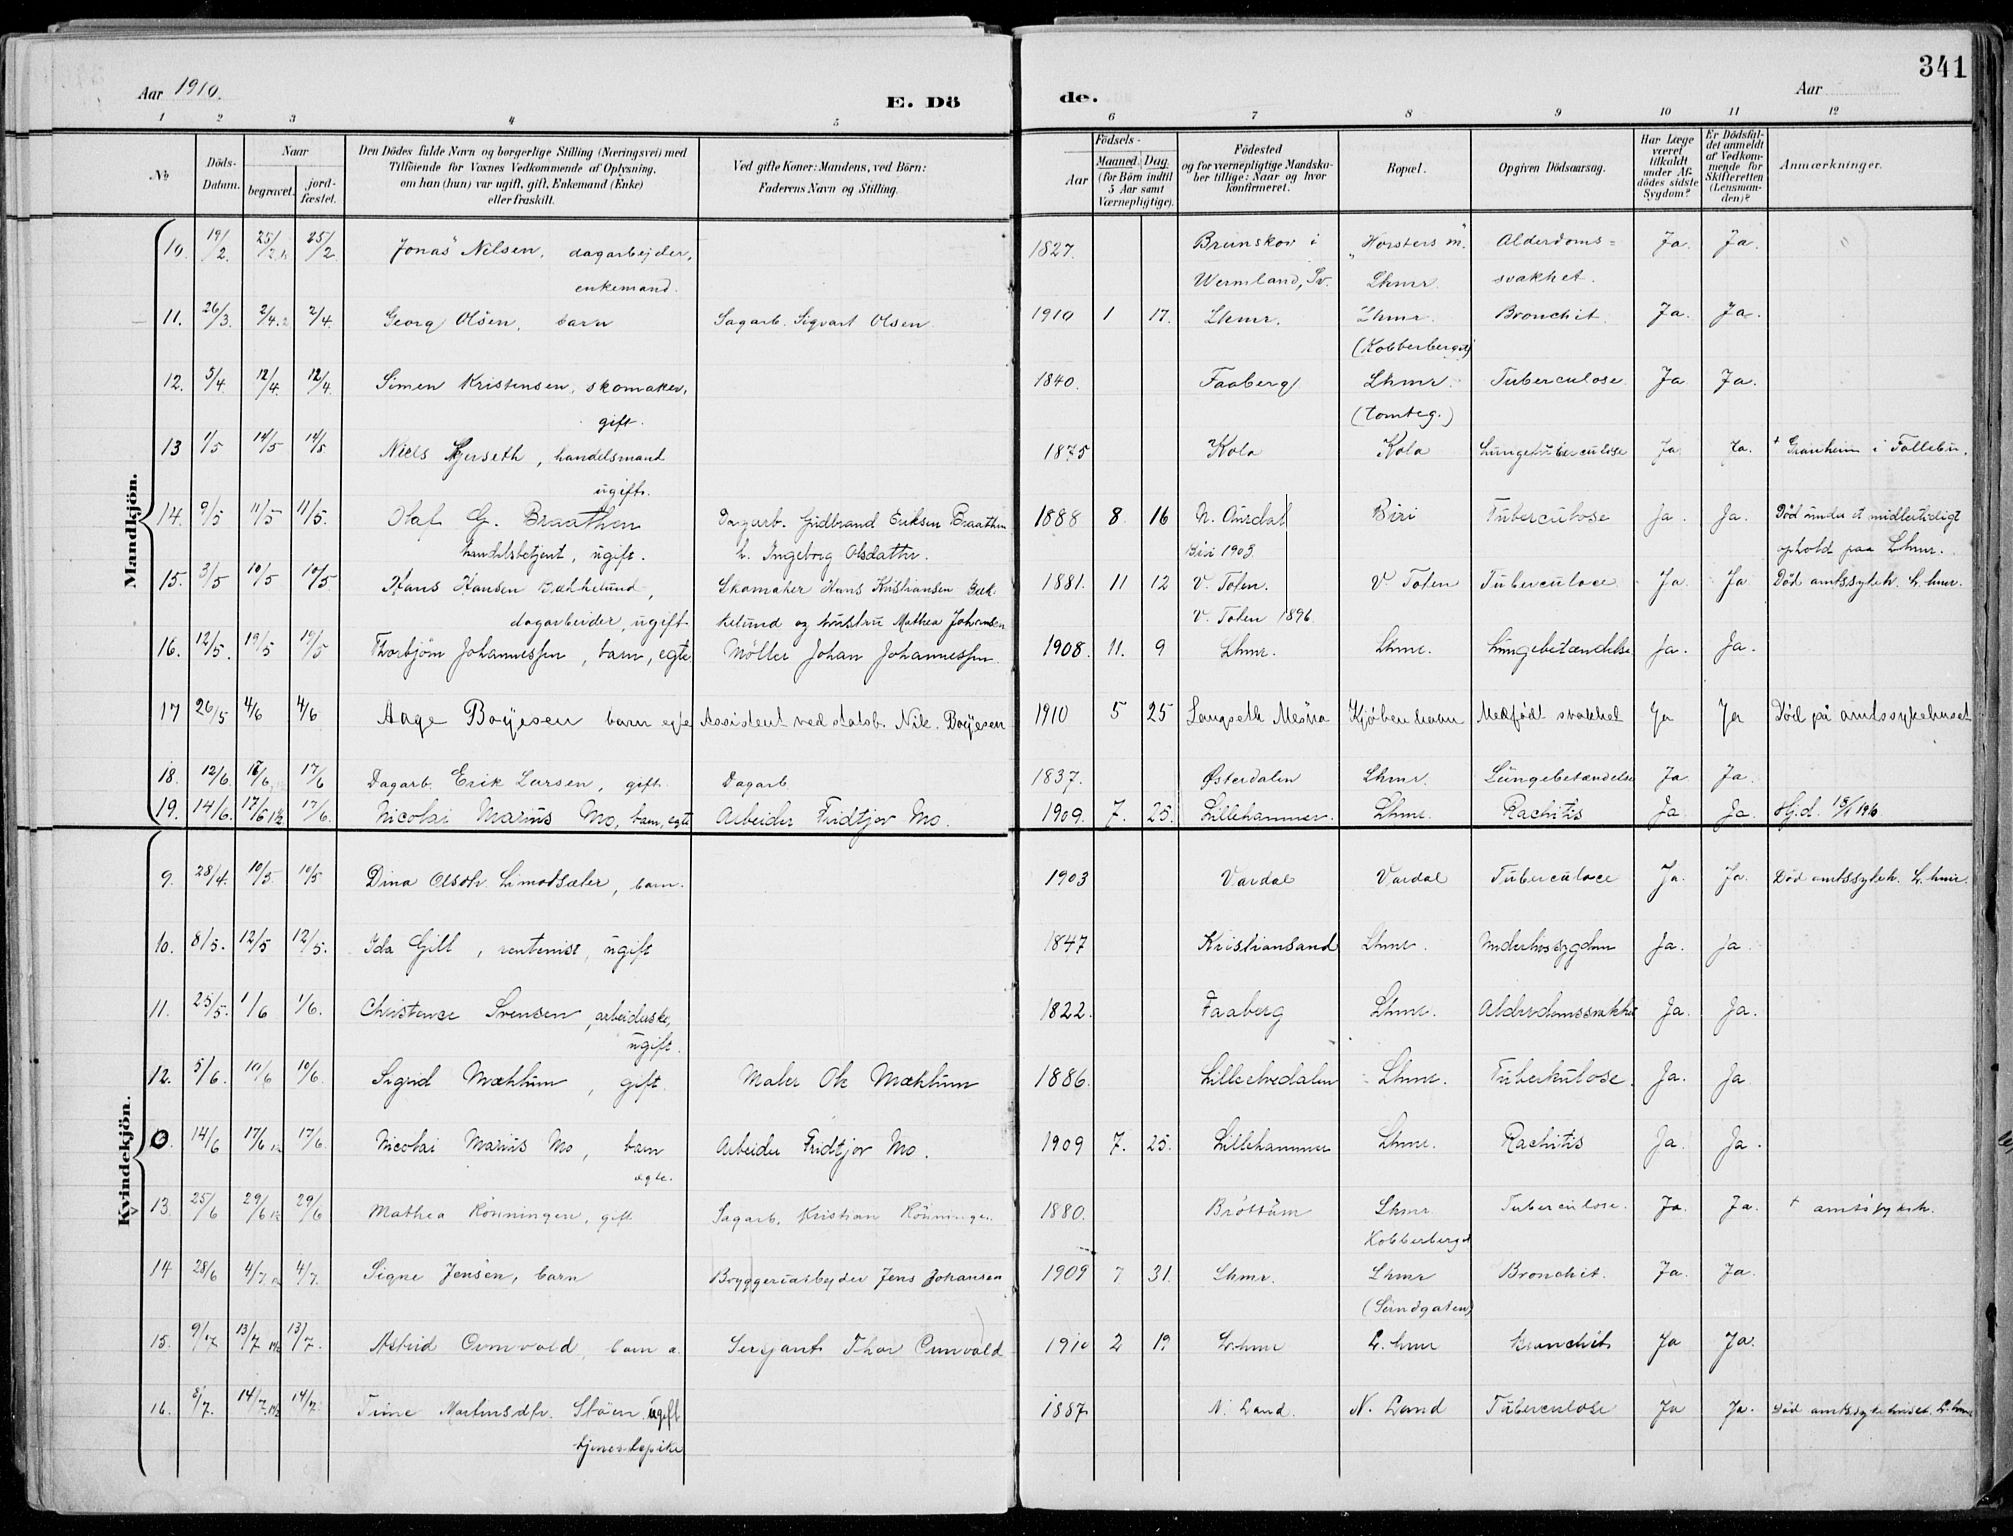 341
Aar 1910.
E. Dö
de.
Aar
1 2 3 4 5 6 7 8 9 10 11 12
No
Döds-Datum.
Naar
begravet.
jord-fæstet.
Den Dödes fulde Navn og borgerlige Stilling (Næringsvei) med
Tilföiende for Voxnes Vedkommende af Oplysning,
om han (hun) var ugift, gift, Enkemand (Enke)
eller fraskilt.
Ved gifte Koner: Mandens, ved Börn:
Faderens Navn og Stilling.
Födsels-
Aar
Maaned. Dag.
(for Börn indtil
5 Aar samt
Værnepligtige).
Födested
og for værnepligtige Mandska-
ber tillige: Naar og hvor
konfirmeret.
Bopæl.
Opgiven Dödsaarsag.
Har Læge
været
tilkaldt
under Af-
dödes sidste
Sygdom?
Er Dödsfal-
det anmeldt
af Vedkom-
mende for
Skifteretten
(Lensman-
den)?
Anmærkninger.
Mandkjön.
10. 19/2. 25/2 25/2. Jonas Nilsen, dagarbejder, 1827. Brunskov i "Horsters m." Alderdoms= Ja. Ja.
enkemand. Wermland, Sv. Lhmr. svakhet.
11. 26/3. 2/4. 2/4. Georg Olsen, barn Sagarb. Sigvart Olsen 1910 1 17. Lhmr. Lhmr. Bronchit. Ja. Ja.
(Kobberberget)
12. 5/4 12/4. 12/4. Simen Kristensen, skomaker, 1840. Faaberg Lhmr. Tuberculose Ja Ja.
gift. (Tomteg.)
13 1/5 14/5 14/5 Niels Gjerseth, handelsmand 1875 Kolo Kolo Lungetuberculose Ja Ja. + Granheim i Follebu.
ugift.
14. 9/5 11/5 11/5. Olaf G. Braathen Dagarb. Gudbrand Eriksen Braathen 1888 8. 16 N. Aurdal Biri Tuberculose Ja. Ja. Död under et midlertidigt
handelsbetjent, ugift. h. Ingeborg Olsdatter. Biri 1903 ophold paa Lhmr.
15. 3/5 10/5 10/5 Hans Hansen Bækkelund, Skomaker Hans Kristiansen Bæk- 1881. 11 12 V. Toten. V. Toten Tuberculose Ja Ja Död amtssykeh. L.hmr.
dagarbeider, ugift kelund og hustru Mathea Johansen V. Toten 1896
16. 12/5. 19/5 19/5 Thorbjörn Johannessen, barn, egte Möller Johan Johannessen. 1908. 11. 9 Lhmr. Lhmr. Lungebetændelse Ja. Ja.
17 26/5 4/6 4/6 Aage Boyesen barn egte Assistent ved statsb. Nik. Boyesen 1910 5 25 Langseth Mesna Kjöbenhavn Medfödt svakhet Ja Ja Död på amtssykehuset
18. 12/6. 17/6 17/6 Dagarb. Erik Larsen, gift. Dagarb 1837. Østerdalen Lhmr. Lungebetændelse Ja Ja.
19. 14/6. 17/6 17/6. Nicolai Marius Mo, barn, egte Arbeider Fridtjov Mo. 1909. 7. 25. Lillehammer. Lhmr. Rachitis Ja. Ja. Hj.d.
Kvindekjön.
9. 28/4. 10/5. 10/5 Dina Olsdtr. Limotsæter, barn. 1903 Vardal Vardal Tuberculose Ja. Ja. Död amtssykeh. L.hmr.
10. 8/5. 12/5 12/5. Ida Gill, rentenist, ugift 1847 Kristiansand Lhmr. Underlivssygdom Ja. Ja.
11. 25/5. 1/6 1/6. Christence Svensen, arbeiderske, 1822. Faaberg Lhmr. Alderdomssvakhet Ja. Ja.
ugift.
12. 5/6. 10/6 10/6. Sigrid Mæhlum, gift. Maler Ole Mæhlum 1886. Lilleelvedalen Lhmr. Tuberkulose. Ja. Ja
0. 14/6 17/6 17/6. Nicolai Marius Mo, barn Arbeider Fridtjov Mo. 1909 7. 25. Lillehammer Lhmr. Rachitis Ja. Ja.
egte.
13. 25/6 29/6 29/6 Mathea Rönningen, gift Sagarb. Kristian Rönningen 1880. Bröttum Lhmr. Tuberculose. Ja. Ja. + amtssykeh.
Kobberberget
14 28/6 4/7 4/7. Signe Jensen, barn Bryggeriarbejder Jens Johansen 1909 7 31. Lhmr. Lhmr Bronchit. Ja. Ja.
15. 9/7 13/7 13/7. Astrid barn Sersjant Thor 1910 2 19 L.hmr L.hmr Bronchit Ja Ja.
16. 8/7. 14/7. 14/7. Trine Martinsdtr. Stöen ugift 1887 N. Land. N. Land Tuberculose Ja Ja. Död amtssykehuset L.hmr
tjenestepike